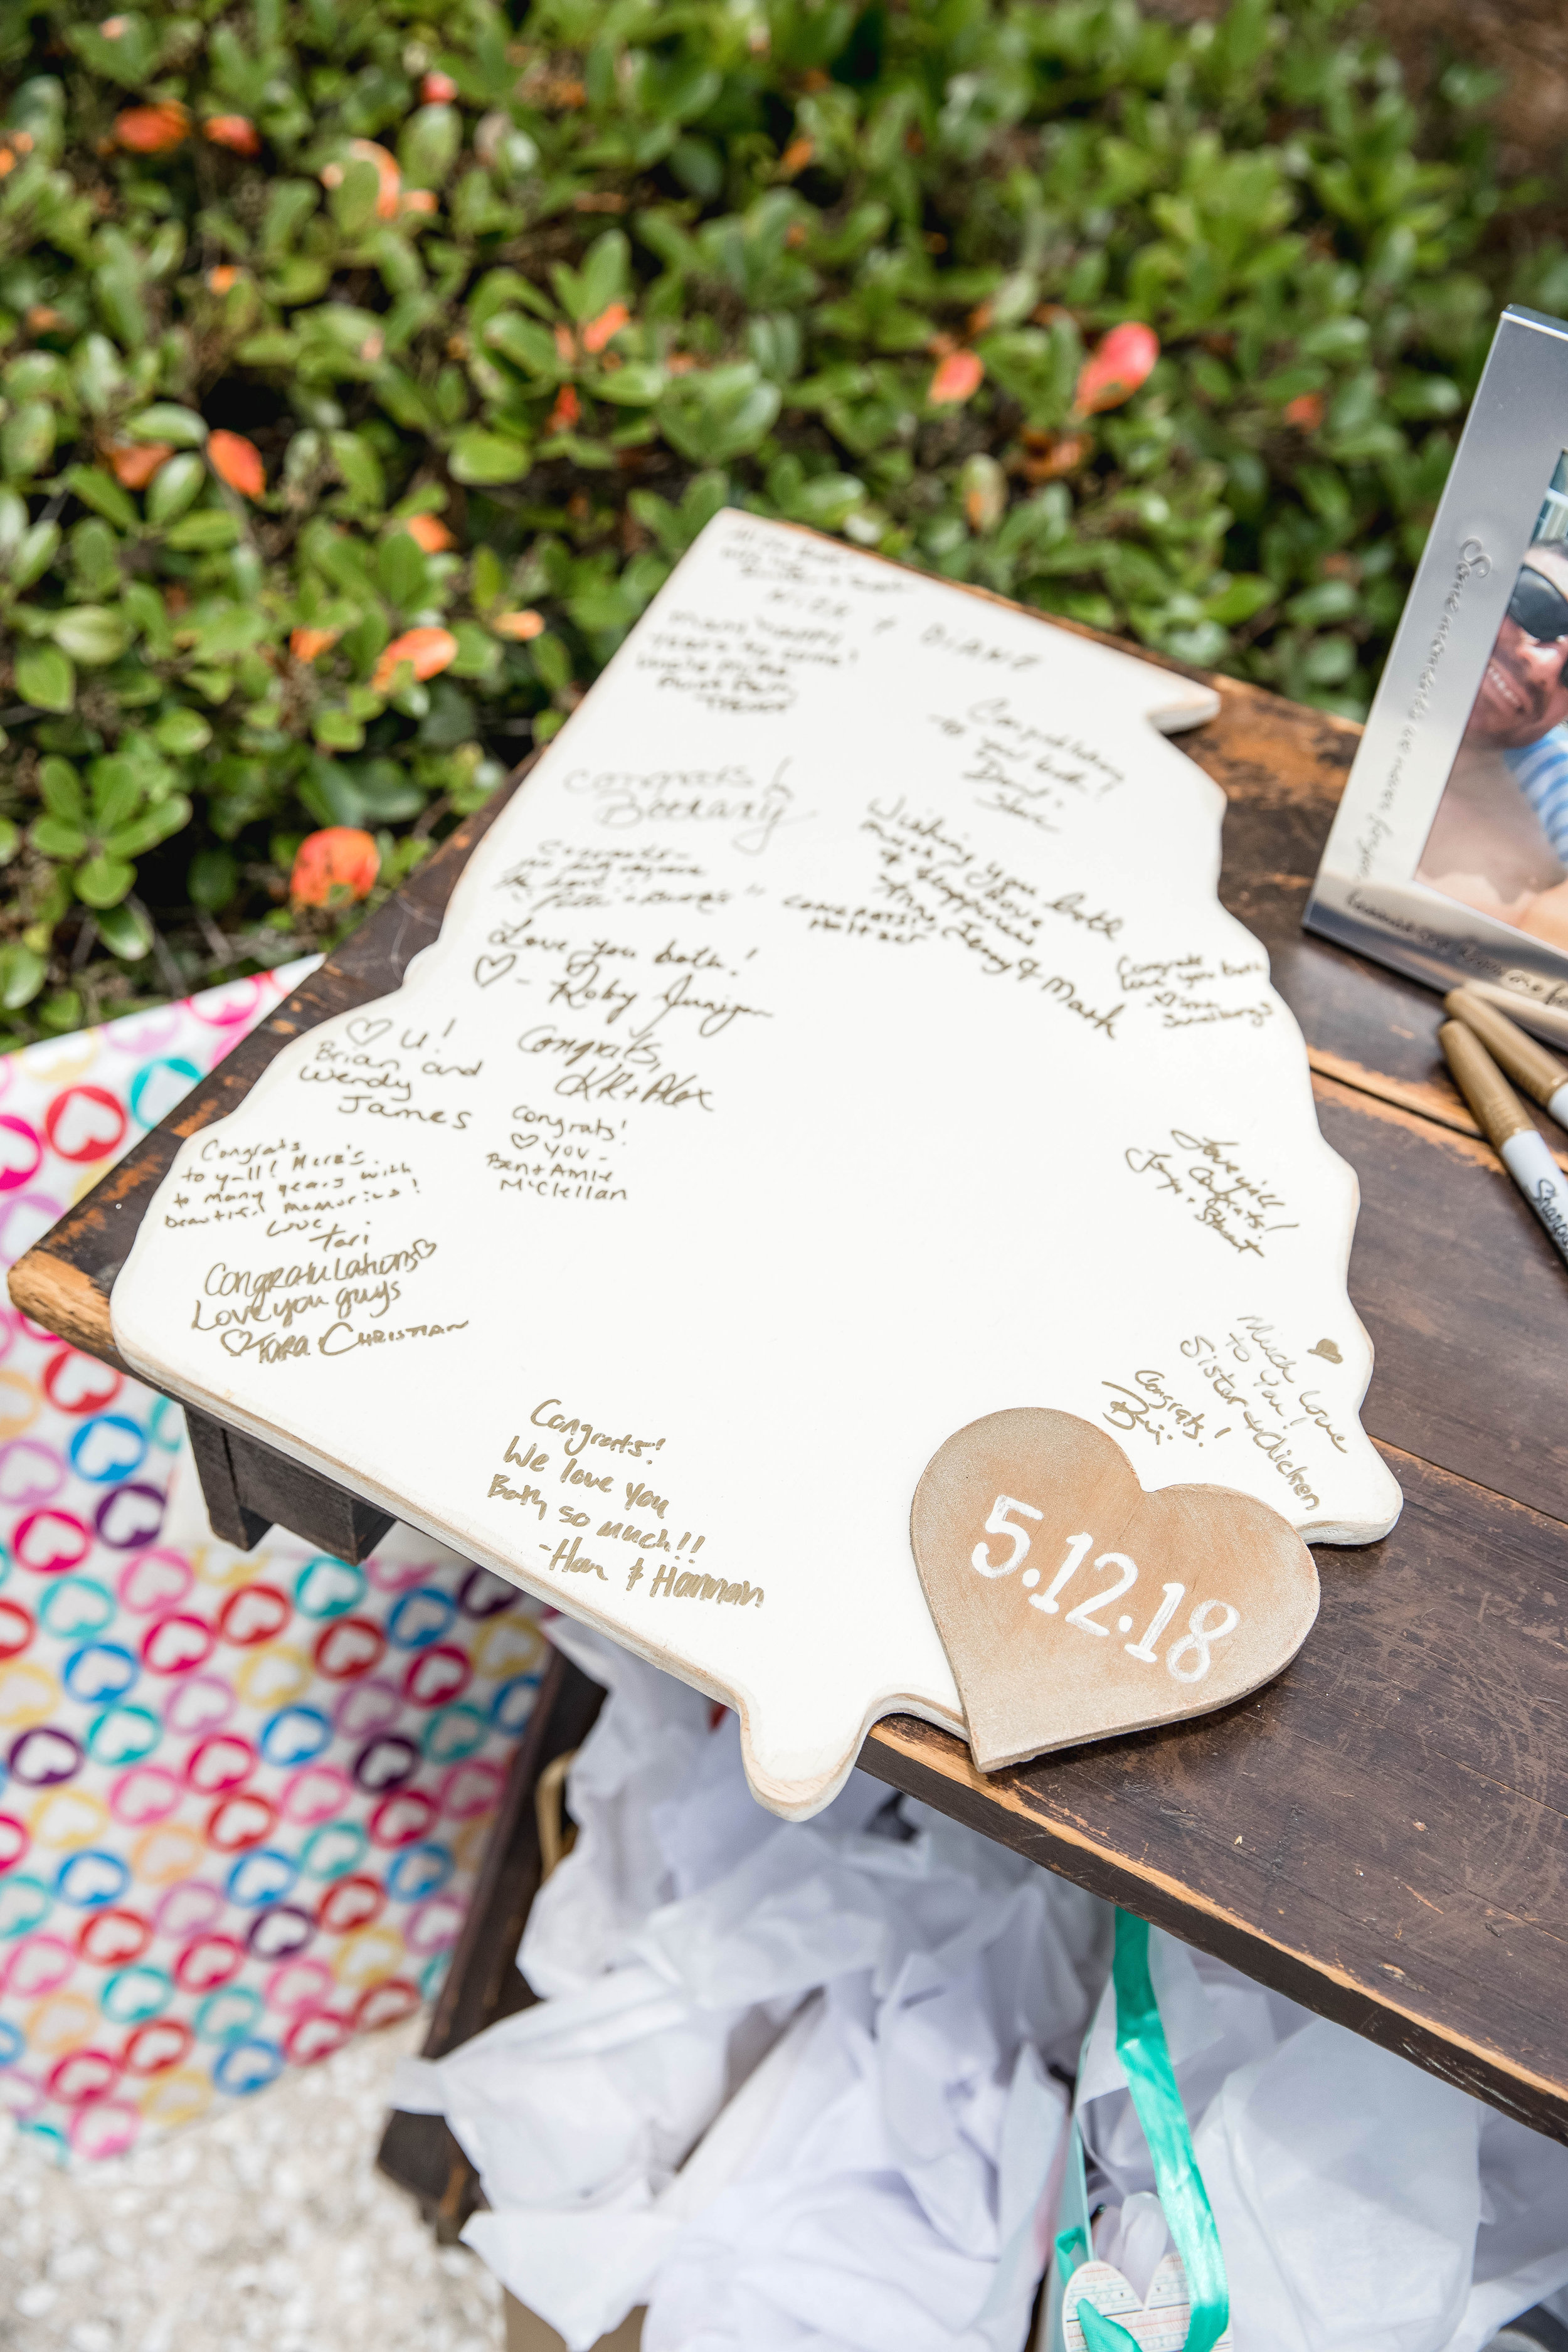 Many happy
years to come!
Uncle Mike
Congrats!
Bethany
Congratulations
to you both!
Wishing you both
much love
& happiness
Jenny & Mark
Congrats-
Love you both!
♡- Roby Jernigan
♡ U!
Brian and
Wendy
James
Congrats,
KR + Alex
Congrats!
♡ you -
Ben + Amie
McClellan
Congrats
to y-all! Here's
to many years with
beautiful memories!
Love
Tori
Congratulations♡
Love you guys
♡Tara Christian
Congrats
Love you both
Love y'all
Congrats!
Much love
to you!
Sister & Chicken
Congrats!
Congrats!
We love you
Both so much!!
-Han & Hannah
5.12.18
Some moments are never forgotten
Sharpie